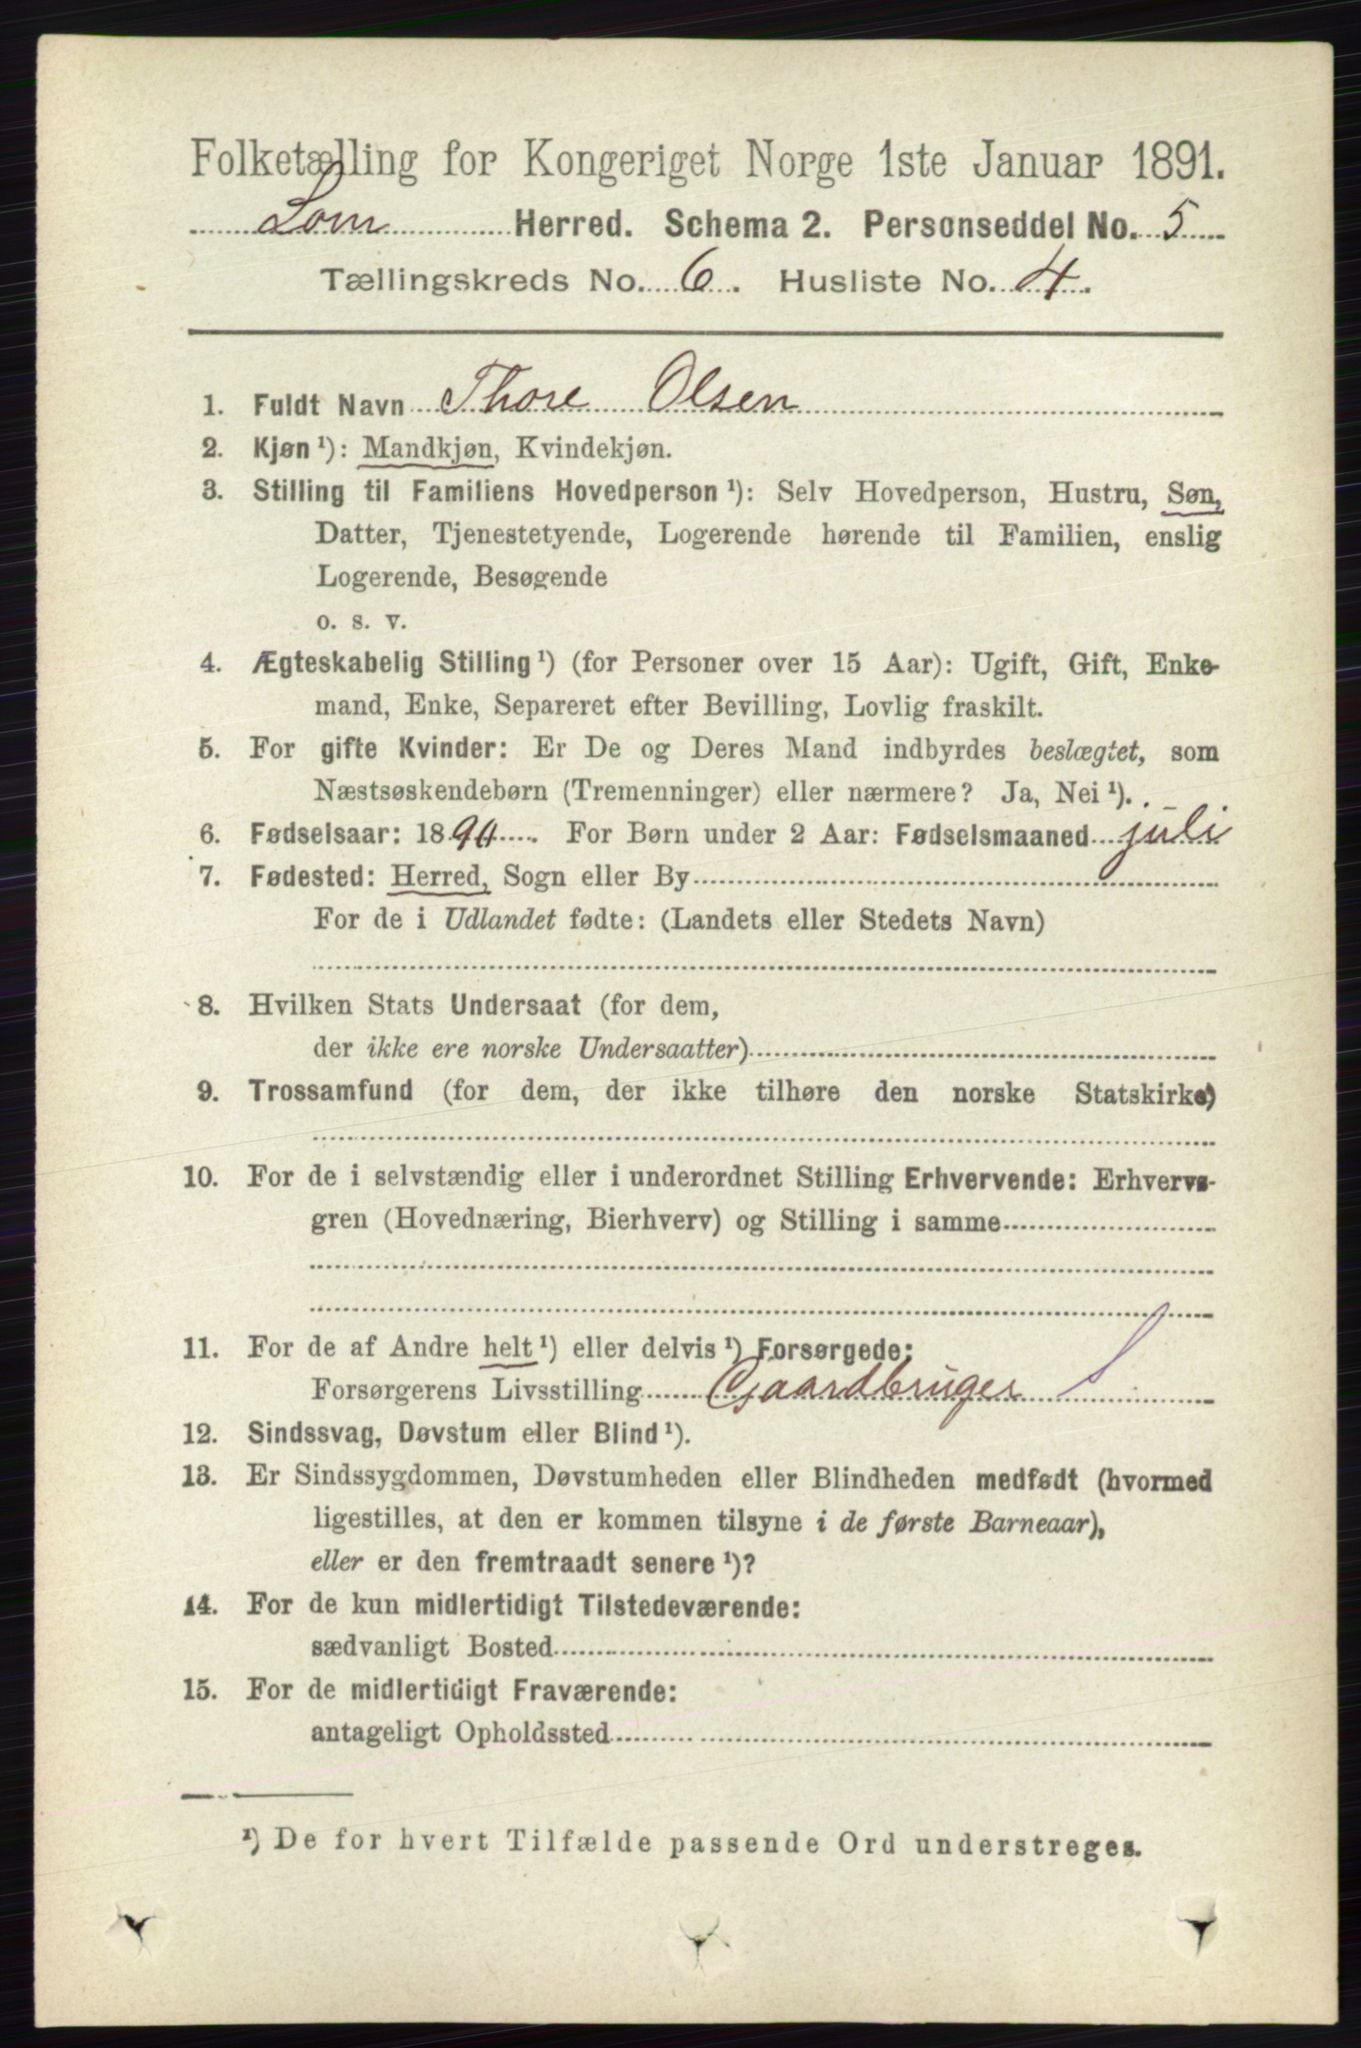 Folketælling for Kongeriget Norge 1ste Januar 1891.
Lom Herred. Schema 2. Personseddel No. 5
Tællingskreds No. 6. Husliste No. 4.
1. Fuldt Navn Thore Olsen
2. Kjøn ¹): Mandkjøn, Kvindekjøn.
3. Stilling til Familiens Hovedperson ¹): Selv Hovedperson, Hustru, Søn,
Datter, Tjenestetyende, Logerende hørende til Familien, enslig
Logerende, Besøgende
o. s. v.
4. Ægteskabelig Stilling ¹) (for Personer over 15 Aar): Ugift, Gift, Enke-
mand, Enke, Separeret efter Bevilling, Lovlig fraskilt.
5. For gifte Kvinder: Er De og Deres Mand indbyrdes beslægtet, som
Næstsøskendebørn (Tremenninger) eller nærmere? Ja, Nei ¹).
6. Fødselsaar: 1890. For Børn under 2 Aar: Fødselsmaaned juli
7. Fødested: Herred, Sogn eller By
For de i Udlandet fødte: (Landets eller Stedets Navn)
8. Hvilken Stats Undersaat (for dem,
der ikke ere norske Undersaatter)
9. Trossamfund (for dem, der ikke tilhøre den norske Statskirke)
10. For de i selvstændig eller i underordnet Stilling Erhvervende: Erhvervs-
gren (Hovednæring, Bierhverv) og Stilling i samme
11. For de af Andre helt ¹) eller delvis ¹) Forsørgede:
Forsørgerens Livsstilling Gaardbruger S
12. Sindssvag, Døvstum eller Blind ¹).
13. Er Sindssygdommen, Døvstumheden eller Blindheden medfødt (hvormed
ligestilles, at den er kommen tilsyne i de første Barneaar),
eller er den fremtraadt senere ¹)?
14. For de kun midlertidigt Tilstedeværende:
sædvanligt Bosted
15. For de midlertidigt Fraværende:
antageligt Opholdssted
¹) De for hvert Tilfælde passende Ord understreges.